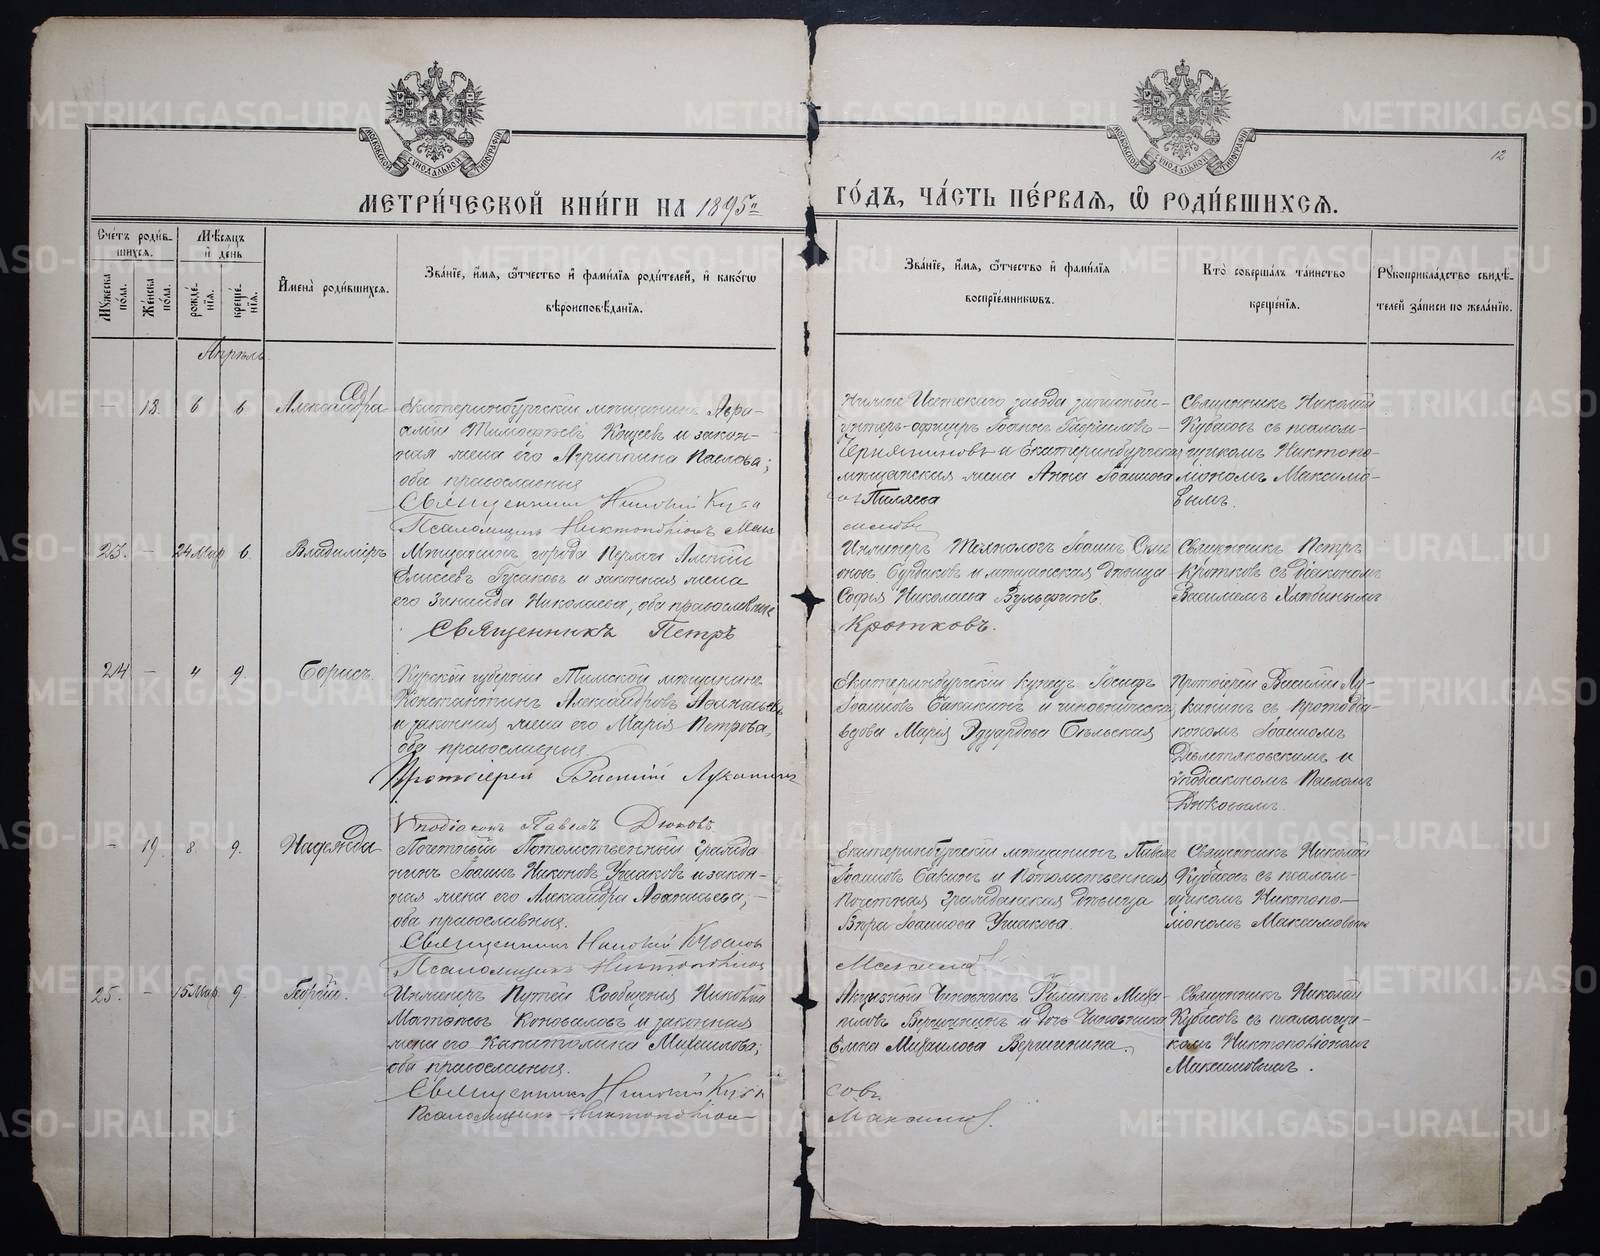 МЕТРИ́ЧЕСКОЙ КНИ́ГИ НА 1895й ГО́ДЪ, ЧА́СТЬ ПЕ́РВАѦ, Ѡ РОДИ́ВШИХСѦ.
12
МОСКОВСКОЙ СѴНОДАЛЬНОЙ ТИПОГРАФІИ
МОСКОВСКОЙ СѴНОДАЛЬНОЙ ТИПОГРАФІИ
Сче́тъ роди́в-
шихсѧ.
Мꙋ́жеска по́ла.
Же́нска по́ла.
Мѣ́сѧцъ
и҆ де́нь
рожде́-
нїѧ.
креще́-
нїѧ.
И҆мена̀ роди́вшихсѧ.
Зва́нїе, и҆́мѧ, ѻ҆́тчество и҆ фами́лїѧ роди́телей, и҆ како́гѡ
вѣроисповѣ́данїѧ.
Зва́нїе, и҆́мѧ, ѻ҆́тчество и҆ фами́лїѧ
воспрїе́мникѡвъ.
Кто̀ соверша́лъ та́инство
креще́нїѧ.
Рꙋкоприкла́дство свидѣ́-
телей за́писи по жела́нїю.
Апрѣль
— 18. 6 6
Александра
Екатеринбургскій мѣщанинъ Авра-
амій Тимофѣевъ Кощеевъ и закон-
ная жена его Агриппина Павлова;
оба православные
Священникъ Николай Куба
Псаломщикъ Никтополіонъ Макс
унтеръ-офицеръ Іоаннъ Гавриловъ
и Екатеринбургская
мѣщанская жена Анна Іоаннова
Пиляева
Священникъ Николай
Кубасовъ съ псалом-
щикомъ Никтопо-
ліономъ Максимо-
вымъ.
23. — 24 Мар. 6
Владиміръ
Мѣщанинъ города Перми Алексій
Елисеевъ Гусаковъ и законная жена
его Зинаида Николаева, оба православные
Священникъ Петръ
Инженеръ Технологъ Іоаннъ Семе
оновъ Бурдаковъ и мѣщанская дѣвица
Софія Николаева Вульфинъ.
Кротковъ.
Священникъ Петръ
Кротковъ съ діакономъ
Василіемъ
24 — 4 9.
Борисъ.
Курской губерніи Тимской мѣщанинъ
Константинъ Александровъ Афанасьевъ
и законная жена его Марія Петрова,
оба православные.
Протоіерей Василій Луканинъ
Ѵподіаконъ Павелъ Дюковъ
Екатеринбургскій купецъ Іосифъ
Іоанновъ Сакакинъ и чиновническая
вдова Марія Эдуардова Бѣльская
Протоіерей Василій Лу-
канинъ съ протодіа-
кономъ Іоанномъ
Девлетяковскимъ и
ѵподіакономъ Павломъ
Дюковымъ.
— 19. 8. 9.
Надежда
Почетный Потомственный Гражда-
нинъ Іоаннъ Никоновъ Ушаковъ и закон-
ная жена его Александра Афанасьева;
оба православные.
Священникъ Николай Кубасовъ
Псаломщикъ Никтополіонъ
Екатеринбургскій мѣщанинъ Павелъ
Іоанновъ Бакинъ и Потомственная
Почетная Гражданская дѣвица
Вѣра Іоаннова Ушакова.
Максимов
Священникъ Николай
Кубасовъ съ псалом-
щикомъ Никтопо-
ліономъ Максимовымъ
25. — 15 Мар. 9.
Георгій.
Инженеръ Путей Сообщенія Николай
Матвѣевъ Коновалов и законная
жена его Капитолина Михаилова;
оба православные.
Священникъ Николай Куба
Псаломщикъ Никтополіон
Акцизной Чиновникъ Филиппъ Миха-
иловъ Вершининъ и дочь Чиновника
Елена Михаилова Вершинина.
совъ
Максимов.
Священникъ Николай
Кубасовъ съ псаломщи-
комъ Никтополіономъ
Максимовымъ.
METRIKI.GASO-URAL.RU